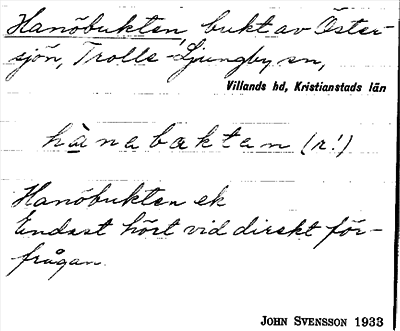 Hanöbukten, bukt av Öster-
sjön, Trolle-Ljungby sn,
Villands hd, Kristianstads län
hànabɵktan (r!)
Hanöbukten ek
Endast hört vid direkt för-
frågan.
JOHN SVENSSON 1933